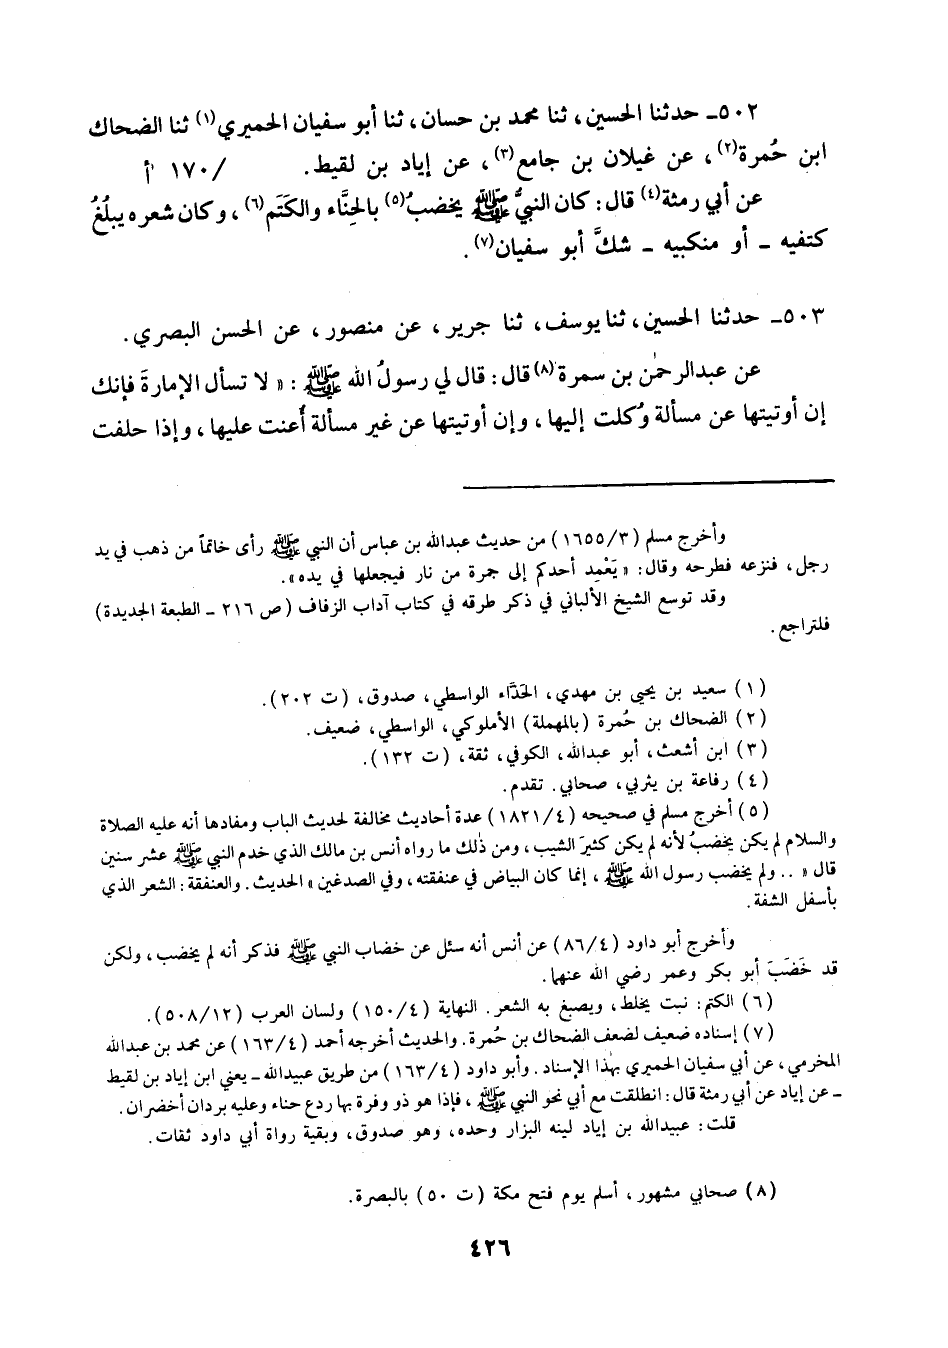 ٥٠٢ـ حدثنا الحسين، ثنا محمد بن حسان، ثنا أبو سفيان الحميري(١) ثنا الضحاك
ابن حُمرة(٢)، عن غيلان بن جامع(٣)، عن إياد بن لقيط. /١٧٠ أ
عن أبي رمثة(٤) قال: كان النبيُّ ﷺ يخضبُ(٥) بالحِنَّاء والكَتَم(٦)، وكان شعره يبلُغُ
كتفيه ـ أو منكبيه ـ شكَّ أبو سفيان(٧).
٥٠٣ـ حدثنا الحسين، ثنا يوسف، ثنا جرير، عن منصور، عن الحسن البصري.
عن عبدالرحمٰن بن سمرة(٨) قال: قال لي رسولُ الله ﷺ: «لا تسأل الإمارةَ فإنك
إن أوتيتها عن مسألة وُكلت إليها، وإن أوتيتها عن غير مسألة أُعنت عليها، وإذا حلفت
وأخرج مسلم (١٦٥٥/٣) من حديث عبدالله بن عباس أن النبي ﷺ رأى خاتماً من ذهب في يد
رجل، فنزعه فطرحه وقال: «يَعْمِد أحدكم إلى جمرة من نار فيجعلها في يده».
وقد توسع الشيخ الألباني في ذكر طرقه في كتاب آداب الزفاف (ص ٢١٦ ـ الطبعة الجديدة)
فلتراجع.
(١) سعيد بن يحيى بن مهدي، الحَذَّاء الواسطي، صدوق، (ت ٢٠٢).
(٢) الضحاك بن حُمرة (بالمهملة) الأملوكي، الواسطي، ضعيف.
(٣) ابن أشعث، أبو عبدالله، الكوفي، ثقة، (ت ١٣٢).
(٤) رفاعة بن يثربي، صحابي. تقدم.
(٥) أخرج مسلم في صحيحه (١٨٢١/٤) عدة أحاديث مخالفة لحديث الباب ومفادها أنه عليه الصلاة
والسلام لم يكن يخضبُ لأنه لم يكن كثيرَ الشيب، ومن ذٰلك ما رواه أنس بن مالك الذي خدم النبي ﷺ عشر سنين
قال «.. ولم يخضب رسول الله ﷺ، إنما كان البياض في عنفقته، وفي الصدغين» الحديث. والعنفقة: الشعر الذي
بأسفل الشفة.
وأخرج أبو داود (٨٦/٤) عن أنس أنه سئل عن خضاب النبي ﷺ فذكر أنه لم يخضب، ولكن
قد خَضَبَ أبو بكر وعمر رضي الله عنهما.
(٦) الكتم: نبت يخلط، ويصبغ به الشعر. النهاية (١٥٠/٤) ولسان العرب (٥٠٨/١٢).
(٧) إسناده ضعيف لضعف الضحاك بن حُمرة. والحديث أخرجه أحمد (١٦٣/٤) عن محمد بن عبدالله
المخرمي، عن أبي سفيان الحميري بهٰذا الإسناد. وأبو داود (١٦٣/٤) من طريق عبيدالله ـ يعني ابن إياد بن لقيط
ـ عن إياد عن أبي رمثة قال: انطلقت مع أبي نحو النبي ﷺ، فإذا هو ذو وفرة بها ردع حناء وعليه بردان أخضران.
قلت: عبيدالله بن إياد لينه البزار وحده، وهو صدوق، وبقية رواة أبي داود ثقات.
(٨) صحابي مشهور، أسلم يوم فتح مكة (ت ٥٠) بالبصرة.
٤٢٦